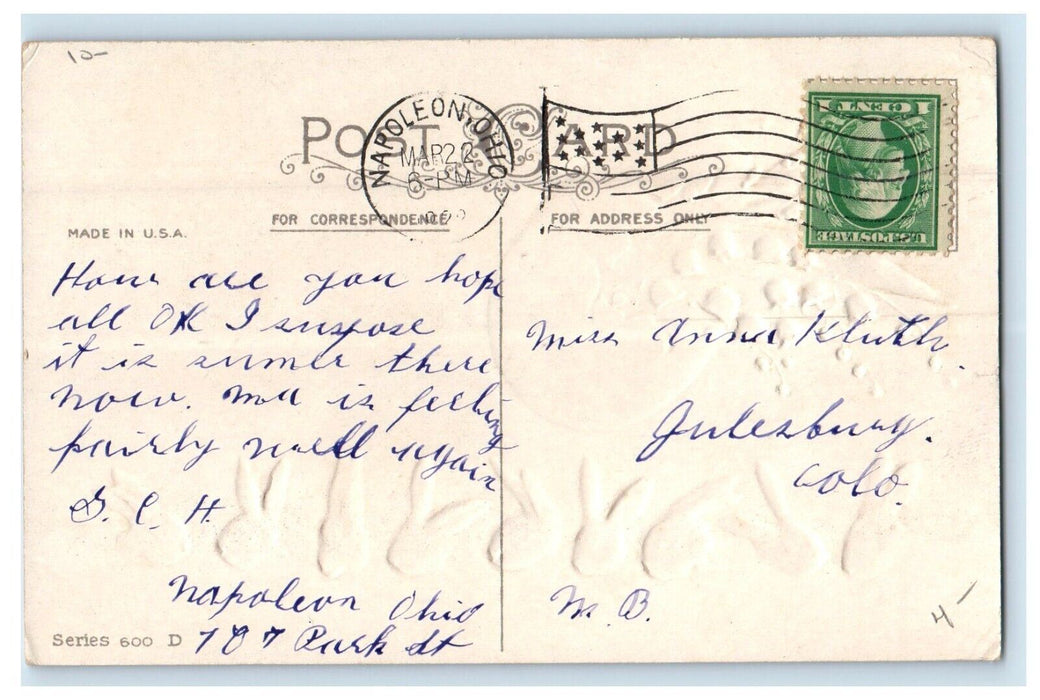 10-
POST CARD
NAPOLEON, OHIO
MAR 22
6-PM
1 CENT 1
U.S. POSTAGE
FOR CORRESPONDENCE
FOR ADDRESS ONLY
MADE IN U.S.A.
How are you hope
all OK I suspose
it is sumer there
now. Ma is feeling
fairly well again
G. C. H.
Napoleon Ohio
707 Park St
Series 600 D
Miss Anna Kluth.
Julesburg.
Colo.
M. B.
4-